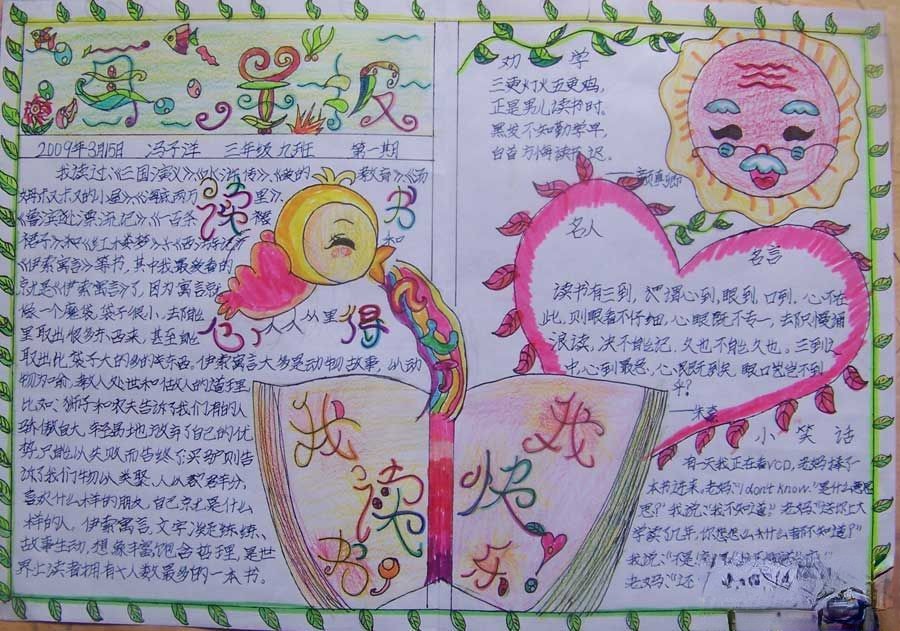 寻星报
2009年3月15日 冯子洋 三年级九班 第一期
读书
心得
我读过《三国演义》《水浒传》《爱的教育》《汤
姆叔叔的小屋》《海底两万里》、
《鲁滨逊漂流记》《一百条裙
裙子》和《红楼梦》《西游记》和
《伊索寓言》等书，其中我最爱看的
就是《伊索寓言》了，因为寓言就
像一个魔袋，袋子很小，去能从里
里取出很多东西来，甚至能
取出比袋子大的多的东西。伊索寓言大多是动物故事，以动
物为喻，教人处世和做人的道理
比如：狮子和农夫告诉了我们有的人
骄傲自大，轻易地放弃了自己的优
势，只能以失败而告终了买驴则告
诉了我们物以类聚，人以群分，
喜欢什么样的朋友，自己就是什么
样的人。伊索寓言，文字凝练，
故事生动，想象丰富，饱含哲理，是世
界上读者拥有人数最多的一本书。
我读书
我快乐
劝 学
三更灯火五更鸡，
正是男儿读书时。
黑发不知勤学早，
白首方悔读书迟。
——颜真卿
名人
名言
读书有三到，谓心到，眼到，口到。心不在
此，则眼看不仔细，心眼既不专一，去只慢诵
浪读，决不能记，久也不能久也。三到之
中，心到最急，心既到矣，眼口岂不到
乎？
——朱熹
小 笑 话
有一天我正在看VCD，老妈捧了一
本书进来，老妈："I don't know."是什么意思
思？"我说："我不知道。"老妈："送你上大
学读了几年，你怎么什么都不知道？"
我说："不是！
老妈："还